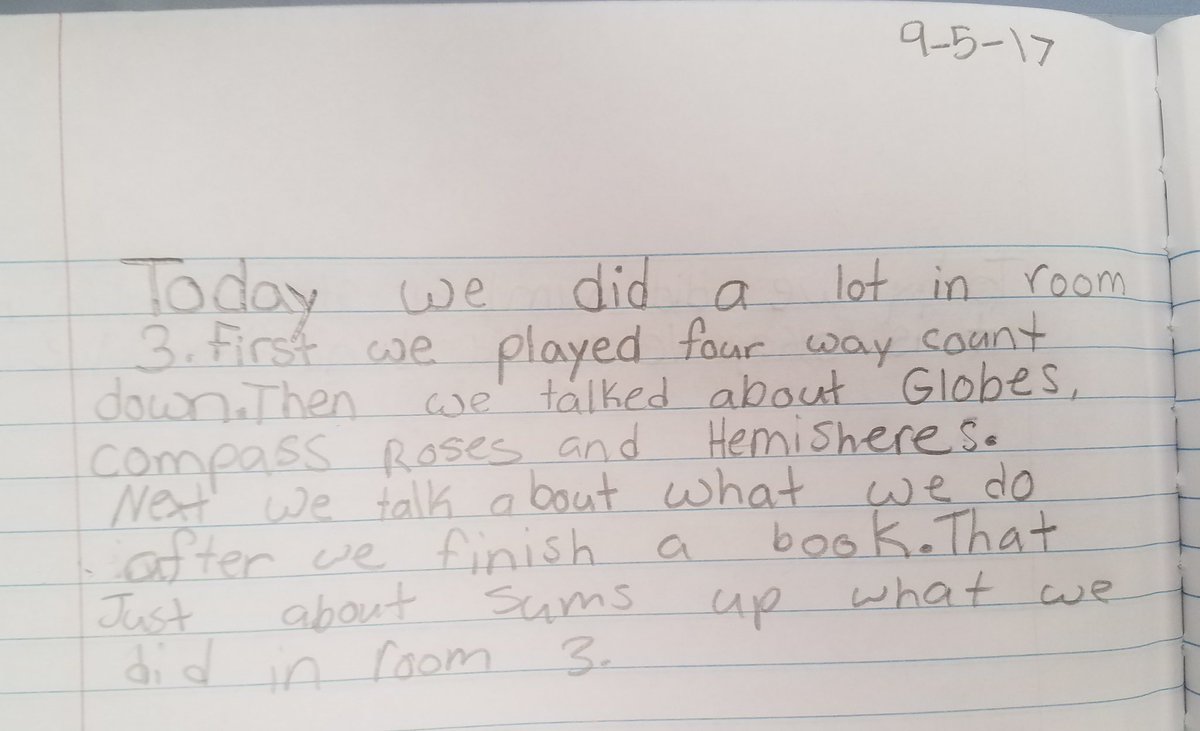 9-5-17
Today we did a lot in room
3. First we played four way count
down. Then we talked about Globes,
compass Roses and Hemisheres.
Next we talk about what we do
after we finish a book. That
Just about sums up what we
did in room 3.